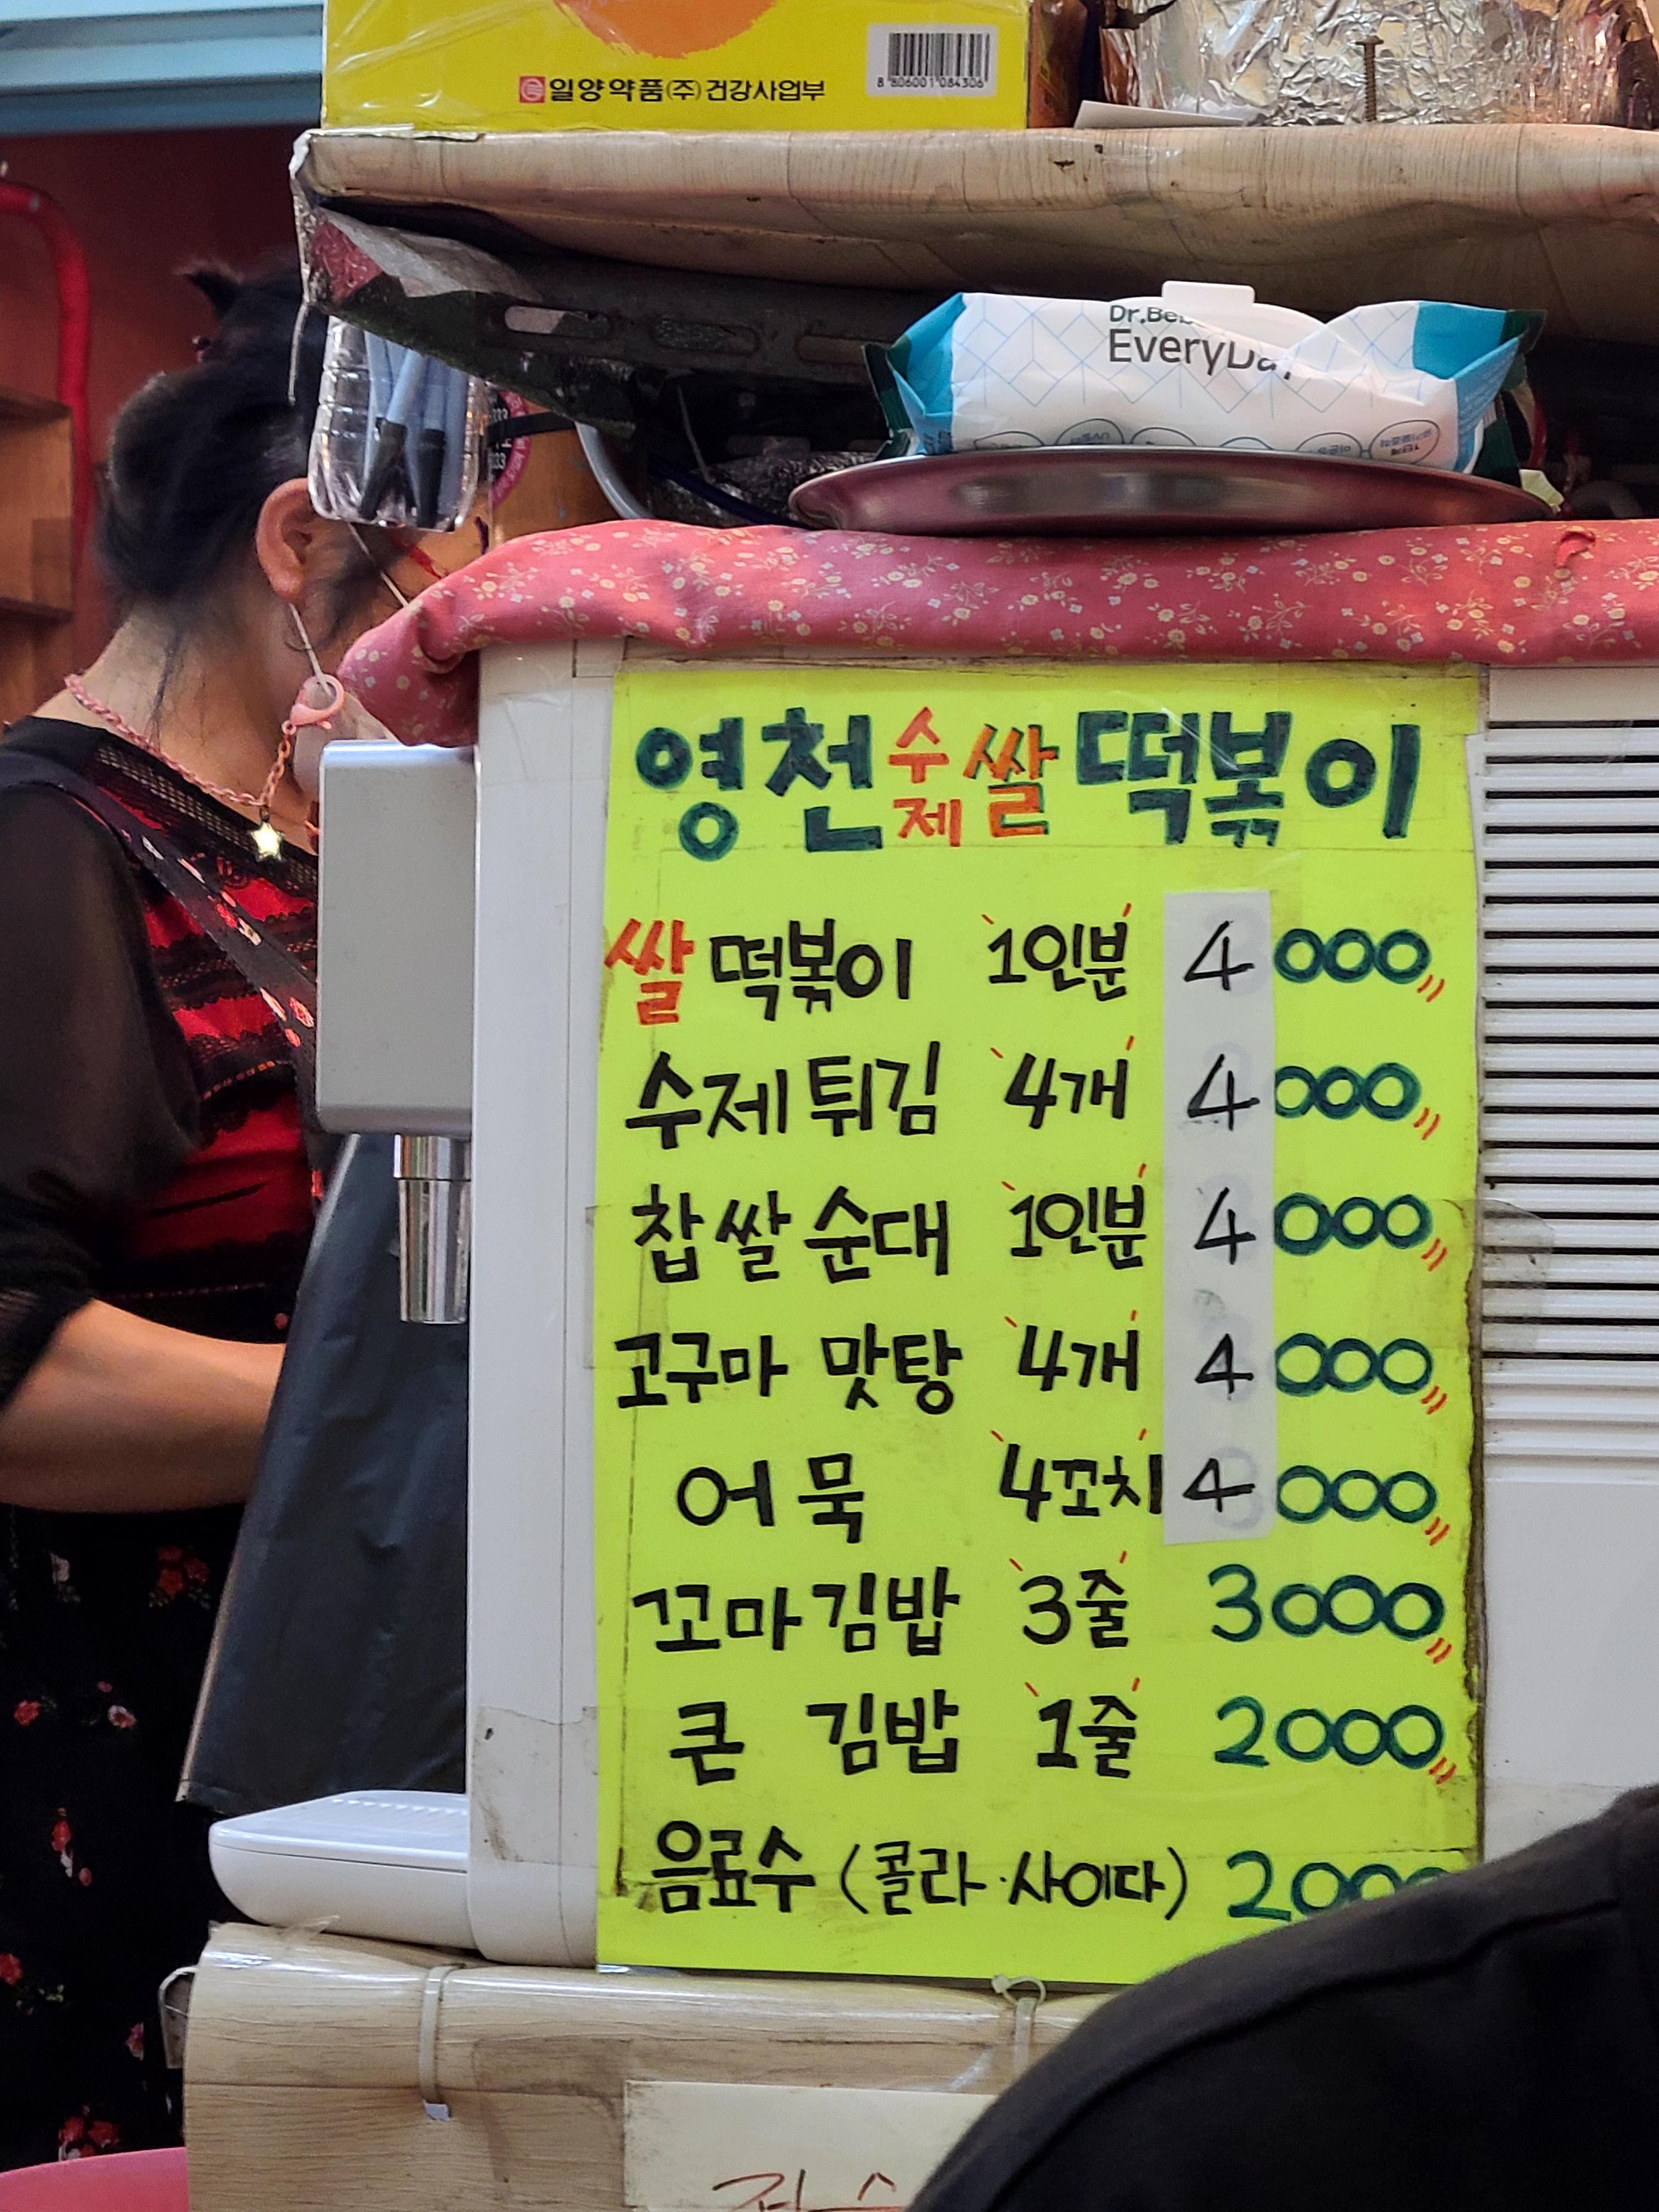 일양약품(주)건강사업부
8 806001 084306
EveryDay
영천 수제 쌀 떡볶이
쌀떡볶이 1인분 4000
수제튀김 4개 4000
찹쌀순대 1인분 4000
고구마 맛탕 4개 4000
어묵 4꼬치 4000
꼬마김밥 3줄 3000
큰 김밥 1줄 2000
음료수 (콜라·사이다) 2000